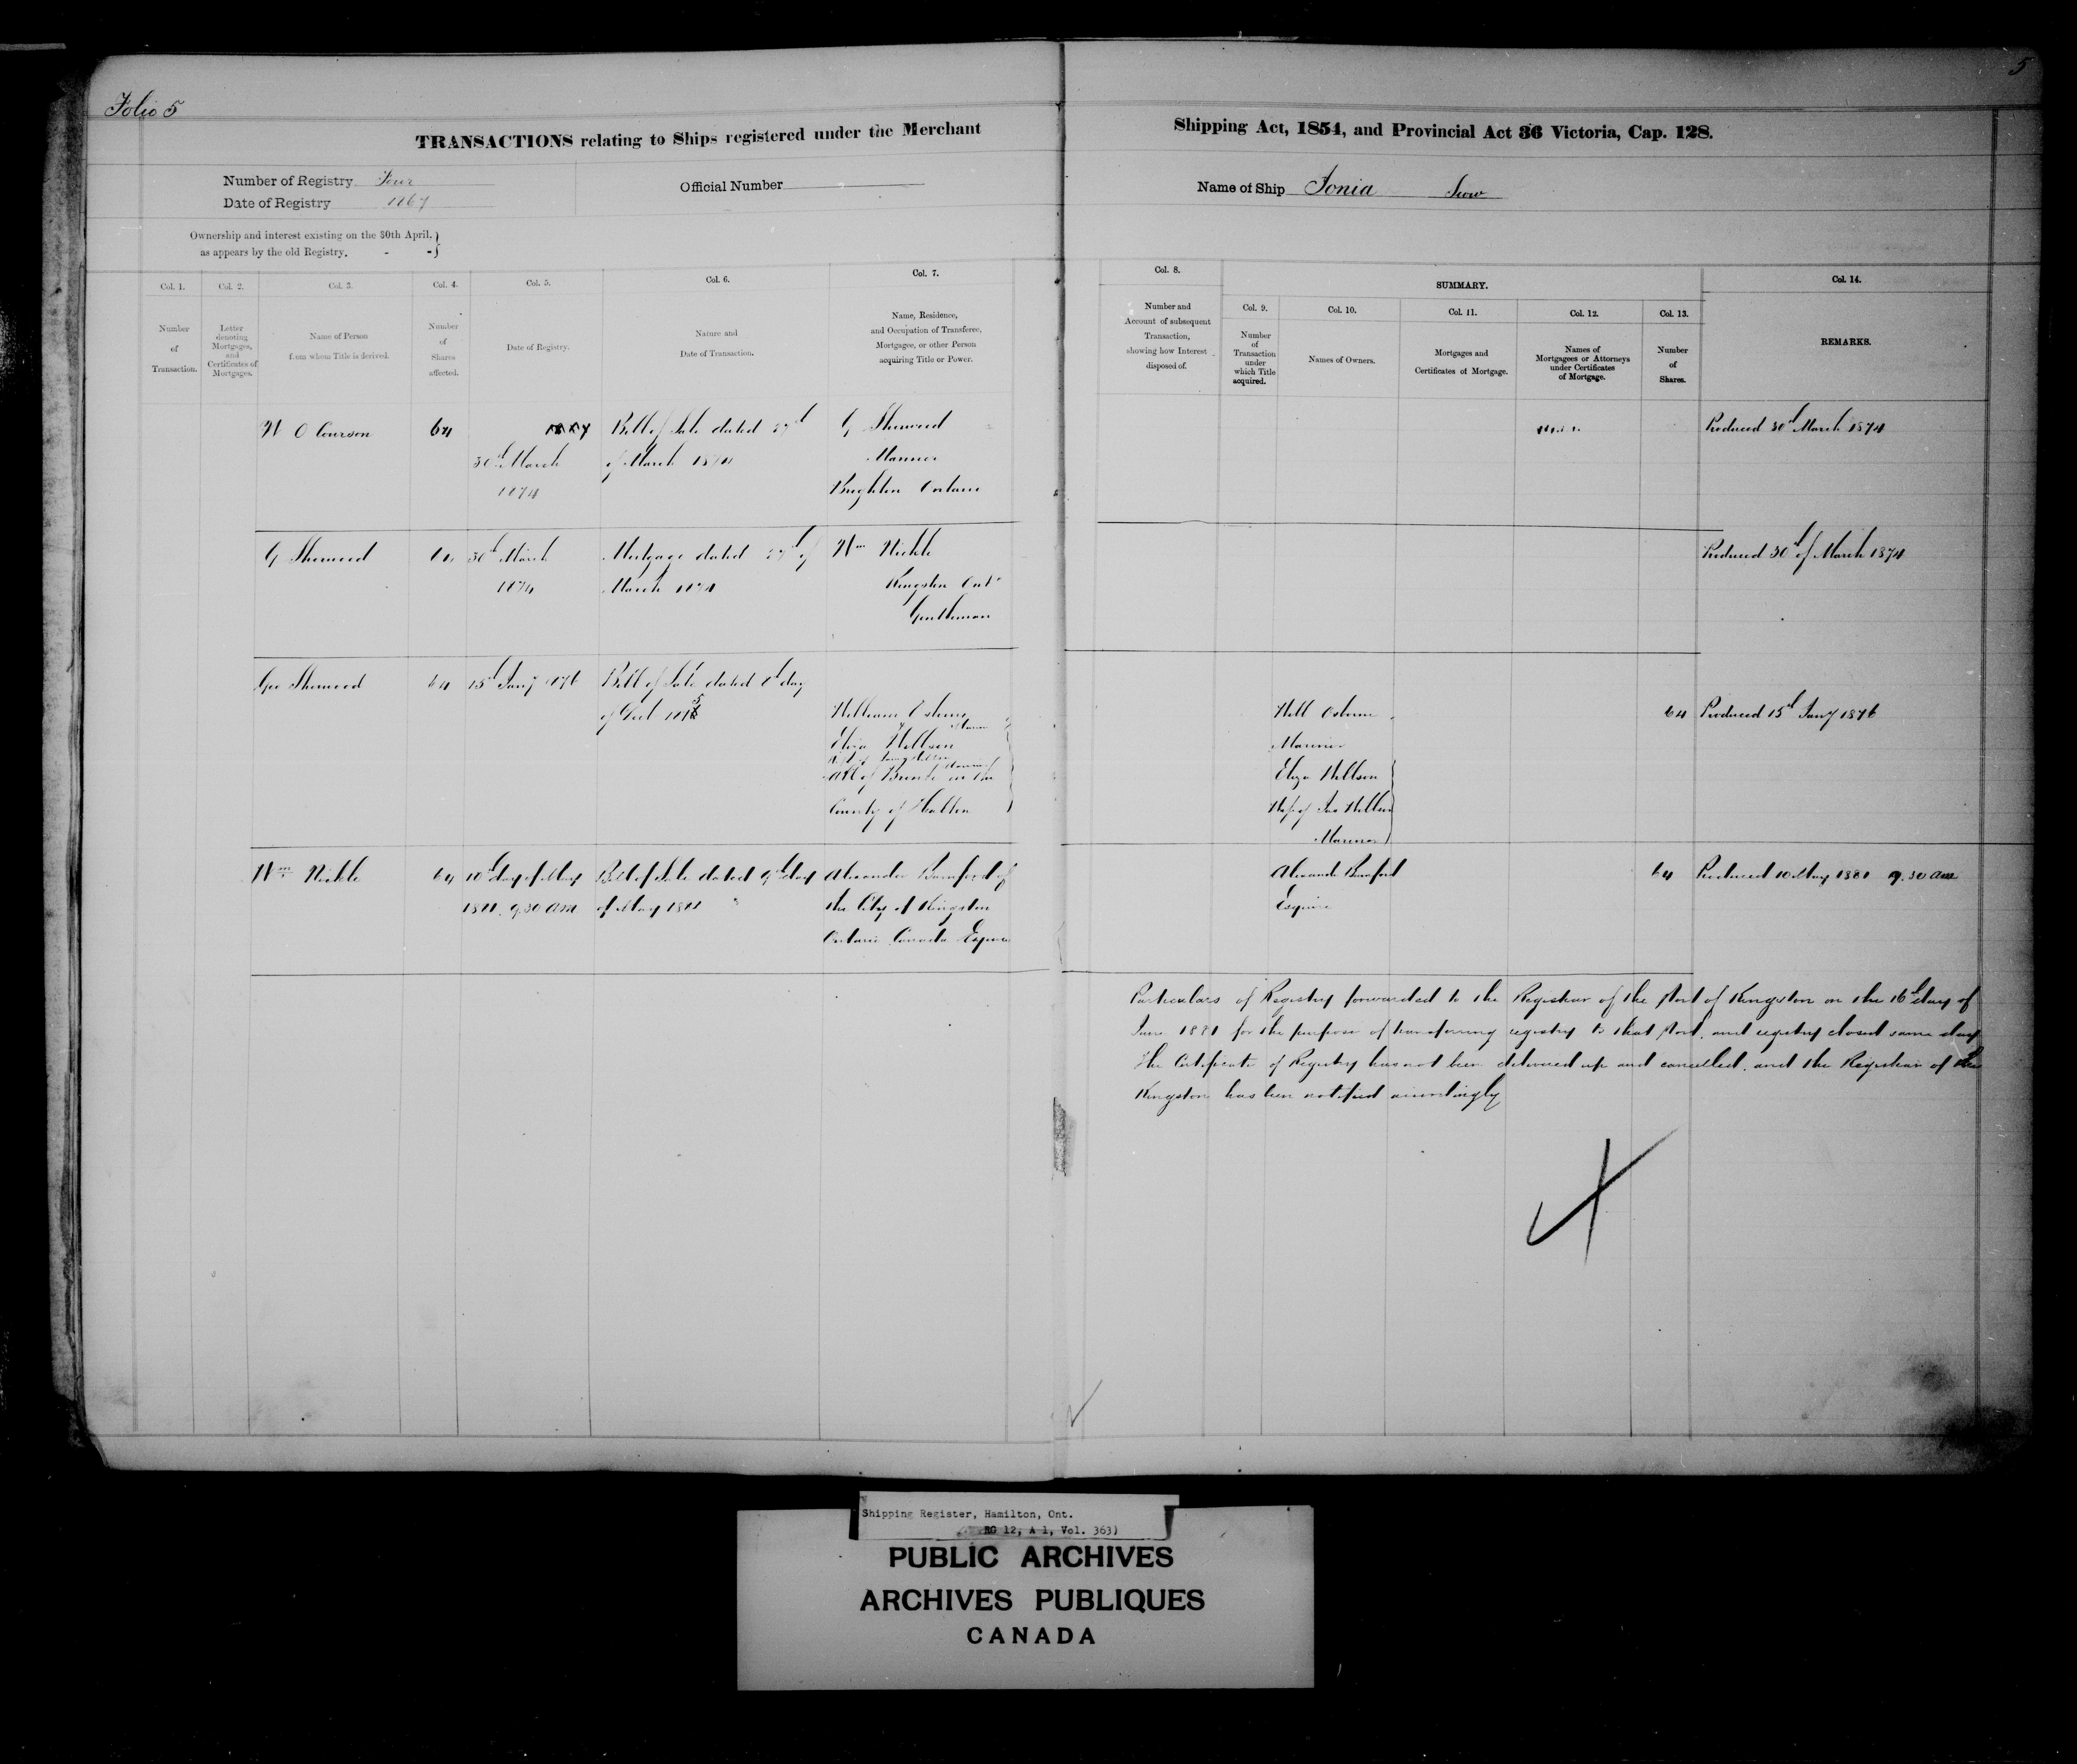 Folio 5
5
TRANSACTIONS relating to Ships registered under the Merchant
Shipping Act, 1854, and Provincial Act 36 Victoria, Cap. 128.
Number of Registry Four
Date of Registry 1867
Official Number
Name of Ship Ionia Scow
Ownership and interest existing on the 30th April.
as appears by the old Registry.
Col. 1.
Number
of
Transaction.
Col. 2.
Letter
denoting
Mortgages,
and
Certificates of
Mortgages.
Col. 3.
Name of Person
from whom Title is derived.
Col. 4.
Number
of
Shares
affected.
Col. 5.
Date of Registry.
Col. 6.
Nature and
Date of Transaction.
Col. 7.
Name, Residence,
and Occupation of Transferee,
Mortgagee, or other Person
acquiring Title or Power.
Col. 8.
Number and
Account of subsequent
Transaction,
showing how Interest
disposed of.
SUMMARY.
Col. 9.
Number
of
Transaction
under
which Title
acquired.
Col. 10.
Names of Owners.
Col. 11.
Mortgages and
Certificates of Mortgage.
Col. 12.
Names of
Mortgagees or Attorneys
under Certificates
of Mortgage.
Col. 13.
Number
of
Shares.
Col. 14.
REMARKS.
W O Courson
64
30th March
1874
Bill of Sale dated 27th
of March 1874
G Sherwood
Mariner
Brighton Ontario
Produced 30th March 1874
G Sherwood
64
30th March
1874
Mortgage dated 27th of
March 1874
Wm Nickle
Kingston Ont
Gentleman
Produced 30th of March 1874
Geo Sherwood
64
15th Jany 1876
Bill of Sale dated 8th day
of Decr 1875
William Osborne
Mariner
Eliza Willson
Wife of
All of Bronte in the
County of Halton
Will Osborne
Mariner
Eliza Willson
Wife of Jno Willson
Mariner
64
Produced 15th Jany 1876
Wm Nickle
64
10th day of May
1881. 9.30 am
Bill of Sale dated 9th day
of May 1881
Alexander Bamford of
the City of Kingston
Ontario Canada Esquire
Alexander Bamford
Esquire
64
Produced 10 May 1881 9.30 am
Particulars of Registry forwarded to the Registrar of the Port of Kingston on the 16th day of
June 1881 for the purpose of transferring registry to that Port, and registry closed same day
The Certificate of Registry has not been delivered up and cancelled, and the Registrar of the
Kingston has been notified accordingly
Shipping Register, Hamilton, Ont.
RG 12, A 1, Vol. 363)
PUBLIC ARCHIVES
ARCHIVES PUBLIQUES
CANADA